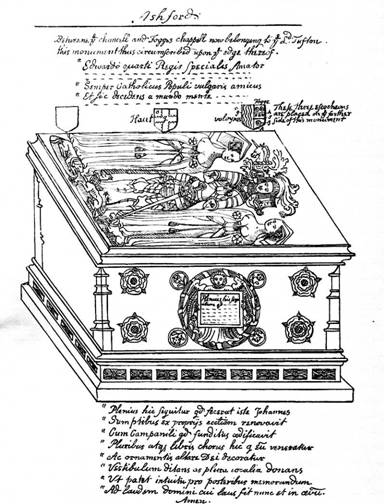 Ashford
Betweene yͤ chancell and Fogges chappell now belonging to yͤ Lᵈ Tufton.
this monument thus circumscribed upon yͤ edge thereof.
" Edwardi quarti Regis specialis Amator
" Semper Catholicus Populi vulgaris amicus
" Et sic decedens a mundo
Haut
valoyns
These three escocheons
are placed on yͤ further
side of this monument
" Plenius hic sequitur qd fecerat iste Johannes
" Sumptibus ex proprijs ecclium renovavit
" Cum Campanili qd funditus edificavit
" Pluribus atqꝫ libris chorus hic q tū veneratur
" Ac ornamentis altare Dei decoratur
" Vestibulum ditans ac plura iocalia donans
" Ut patet intuitu pro posteritus memorandum
" Ad laudem domini cui laus sit nunc et in
Amen.